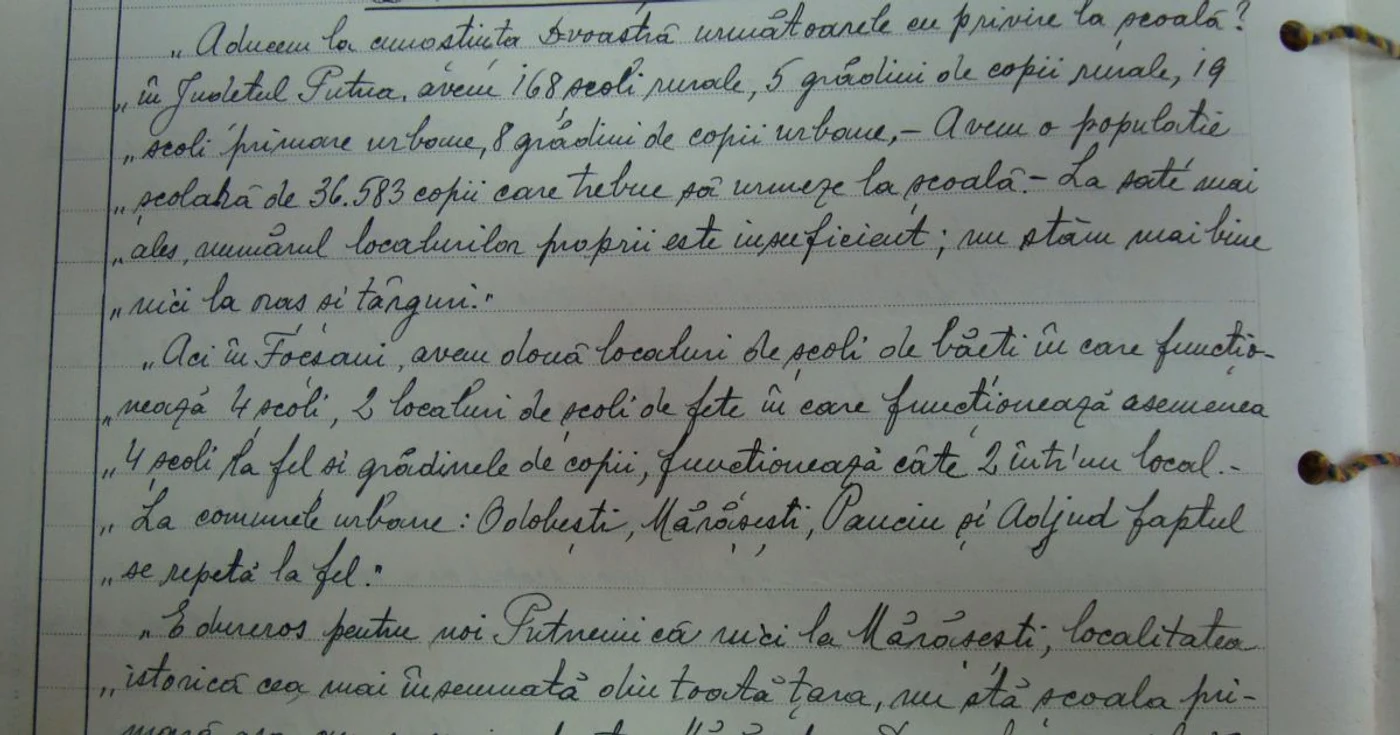 „Aducem la cunoștința Dvoastră următoarele cu privire la școală?
„în Județul Putna, avem 168 școli rurale, 5 grădini de copii rurale, 19
„școli primare urbane, 8 grădini de copii urbane,- Avem o populatie
„școlară de 36.583 copii care trebue să urmeze la școală.- La sate mai
„ales, numărul localurilor proprii este insuficient; nu stăm mai bine
„nici la oras si târguri."
„Aci în Focșani, avem două localuri de școli de băeti în care funcțio-
„nează 4 școli, 2 localuri de școli de fete în care funcționează asemenea
„4 școli la fel si grădinele de copii, functionează câte 2 într'un local.-
„La comunele urbane: Odobești, Mărășești, Panciu și Adjud faptul
„se repetă la fel."
„E dureros pentru noi Putnenii că nici la Mărășești, localitatea
„istorică cea mai însemnată din toată țara, nu stă școala pri-